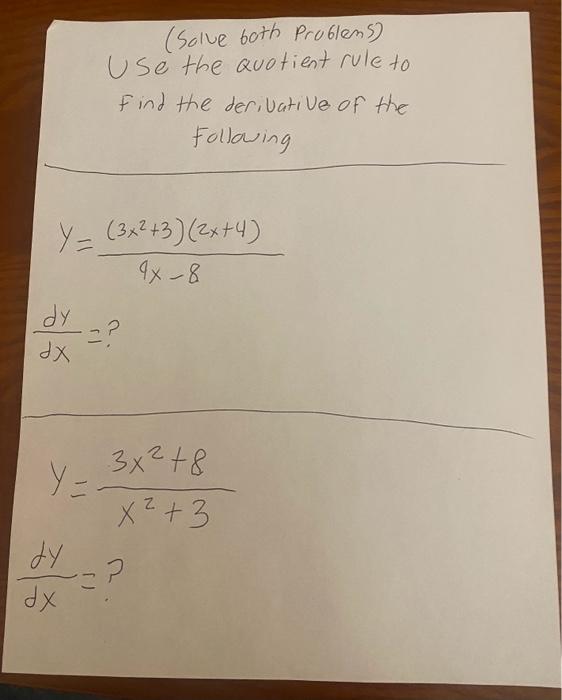 (Solve both Problems)
Use the quotient rule to
find the derivative of the
following
y = (3x²+3)(2x+4)
9x - 8
dy
dx
= ?
y = 3x²+8
x²+3
dy
dx
= ?